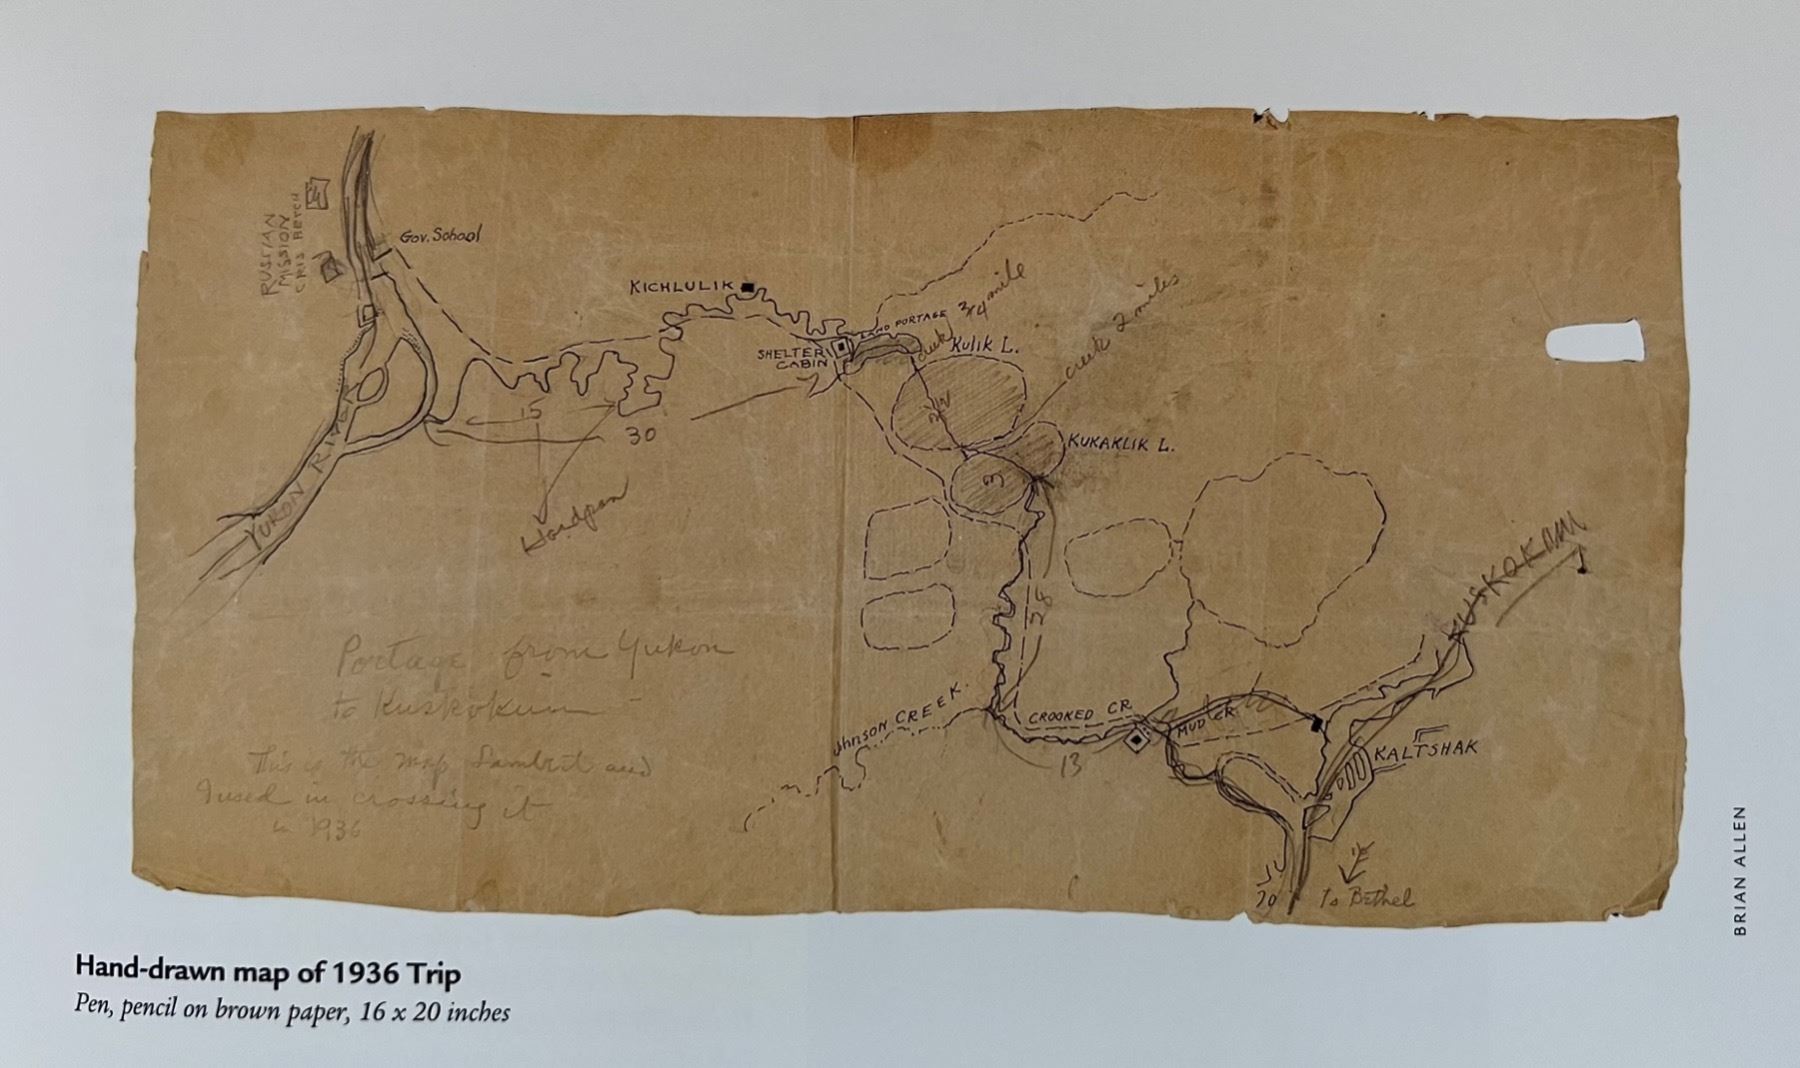 RUSSIAN
MISSION
CRIS BETCH
Gov. School
KICHLULIK
LAND PORTAGE
3/4 mile
creek 2 miles
SHELTER
CABIN
Kulik L.
2 1/2
15
30
KUKAKLIK L.
3
Hardpan
YUKON RIVER
KUSKOKUM
28
Portage from Yukon
to Kuskokum
Johnson CREEK.
CROOKED CR.
MUD CR.
13
KALTSHAK
This is the map Lambert and
I used in crossing it
in 1936
70
to Bethel
Hand-drawn map of 1936 Trip
Pen, pencil on brown paper, 16 x 20 inches
BRIAN ALLEN